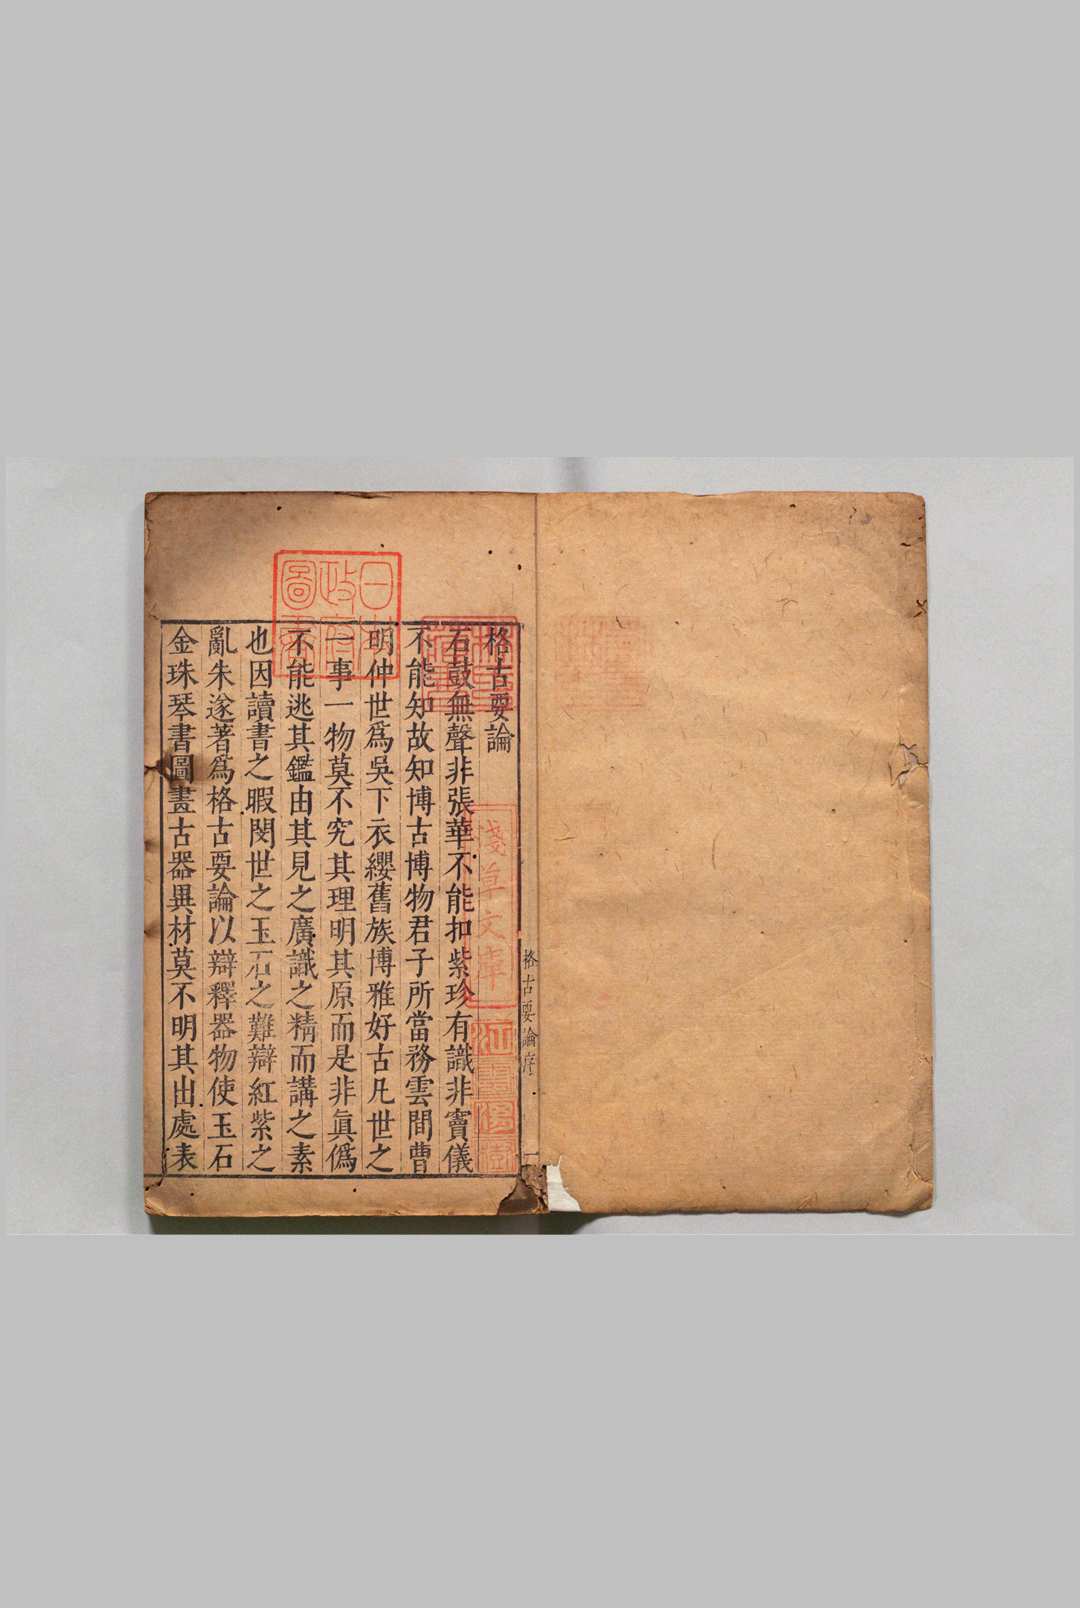 格古要論
石鼓無聲非張華不能扣紫珍有識非竇儀
不能知故知博古博物君子所當務雲間曹
明仲世爲吳下衣纓舊族博雅好古凡世之
一事一物莫不究其理明其原而是非眞僞
不能逃其鑑由其見之廣識之精而講之素
也因讀書之暇閔世之玉石之難辯紅紫之
亂朱遂著爲格古要論以辯釋器物使玉石
金珠琴書圖畫古器異材莫不明其出處表
格古要論序
一
日本政府圖書
淺草文庫
林氏藏書